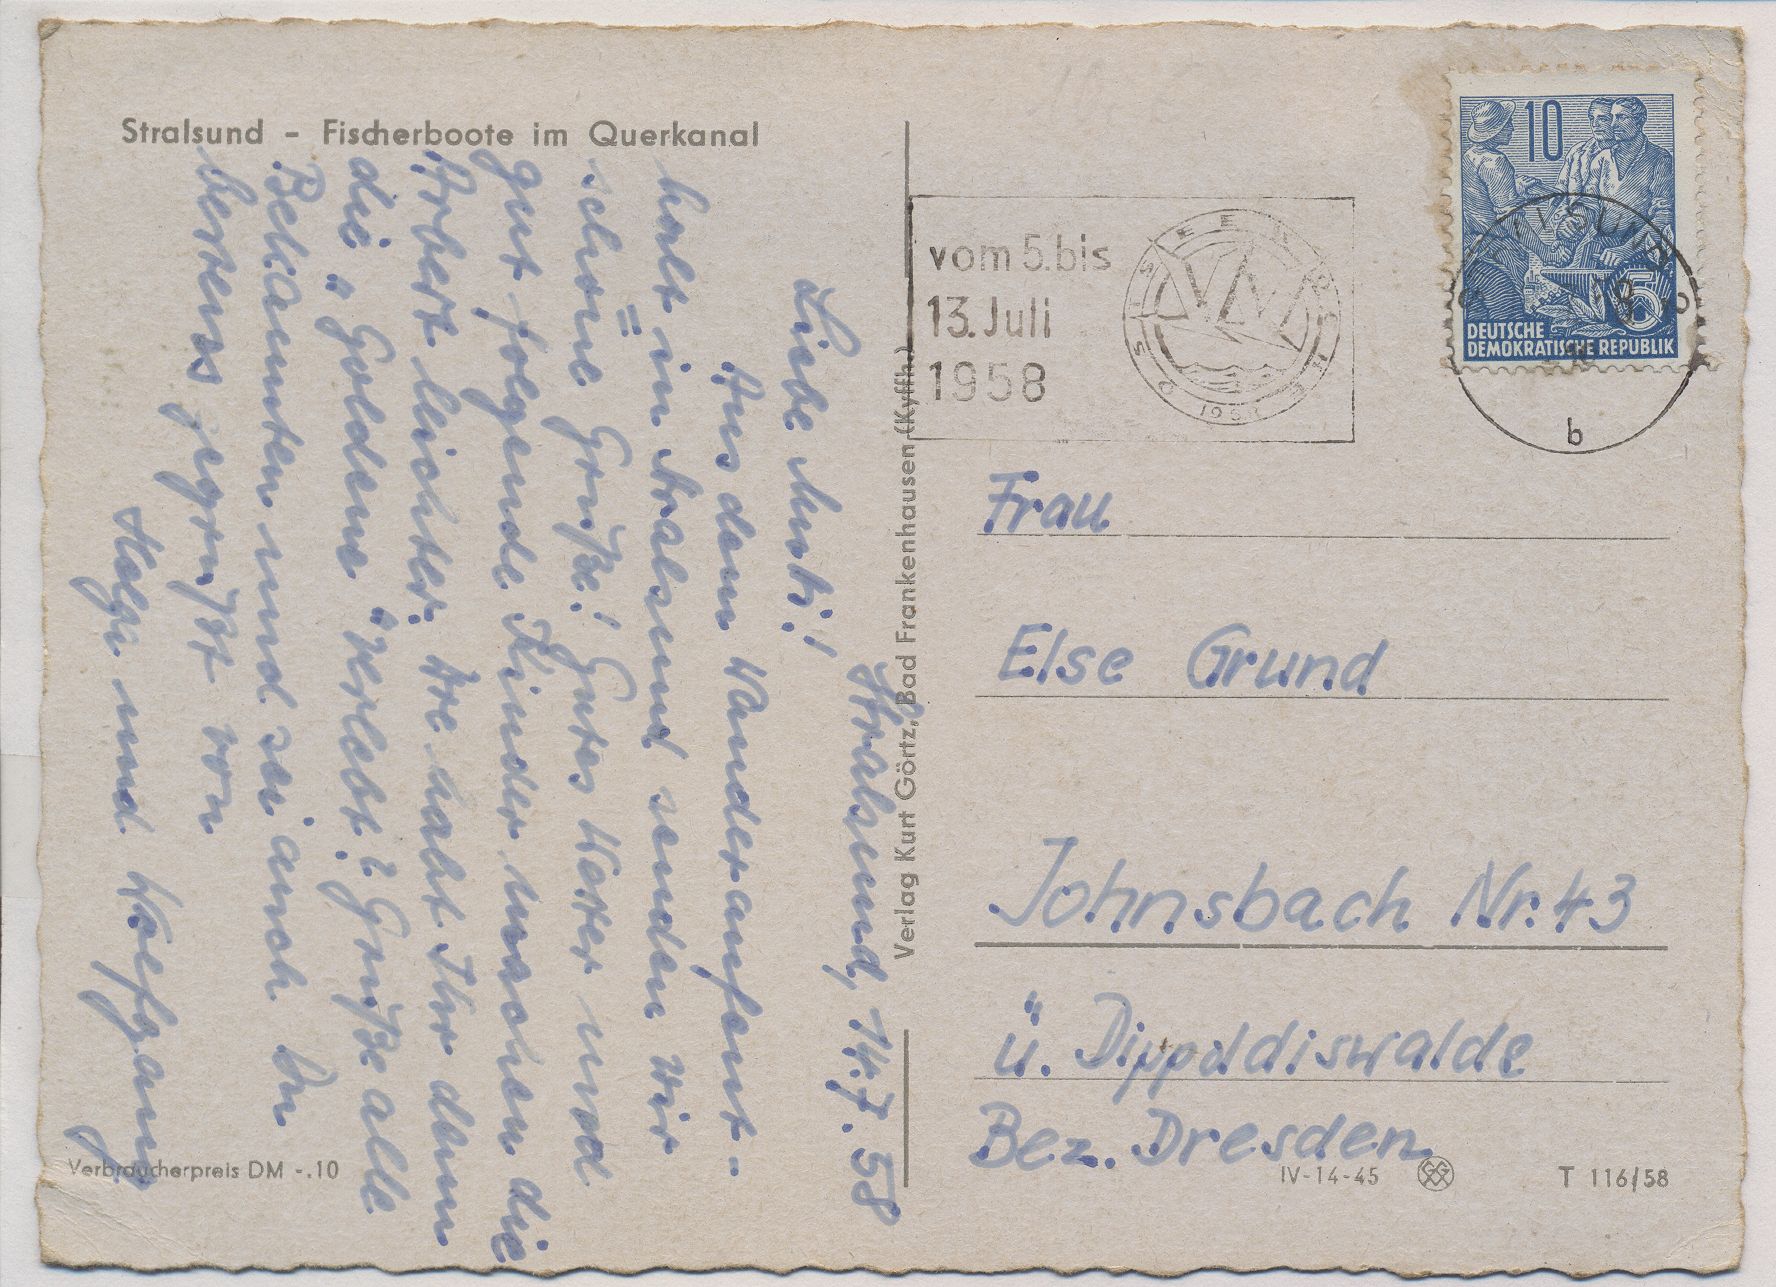 Stralsund - Fischerboote im Querkanal
Stralsund, 14.7.58
Liebe Mutti!
Aus dem Wanderaufent-
halt in Stralsund senden wir
schöne Grüße! Gutes Wetter und
gut folgende Kinder machen die
Arbeit leichter. Wie habt Ihr denn
die "Goldene" verlebt? Grüße alle
Bekannten und sei auch Du
bestens gegrüßt von
Helga und Wolfgang
Verbraucherpreis DM -.10
Verlag Kurt Görtz, Bad Frankenhausen (Kyffh.)
vom 5. bis
13. Juli
1958
OSTSEEWOCHE
1958
10
5
DEUTSCHE
DEMOKRATISCHE REPUBLIK
STRALSUND
b
Frau
Else Grund
Johnsbach Nr. 43
ü. Dippoldiswalde
Bez. Dresden
IV-14-45
T 116/58